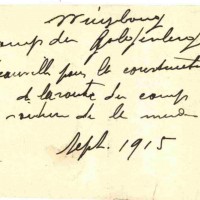 Würzbourg
camp du Galgenberg
travaille pour la construction
de la route du camp
de la
Sept. 1915